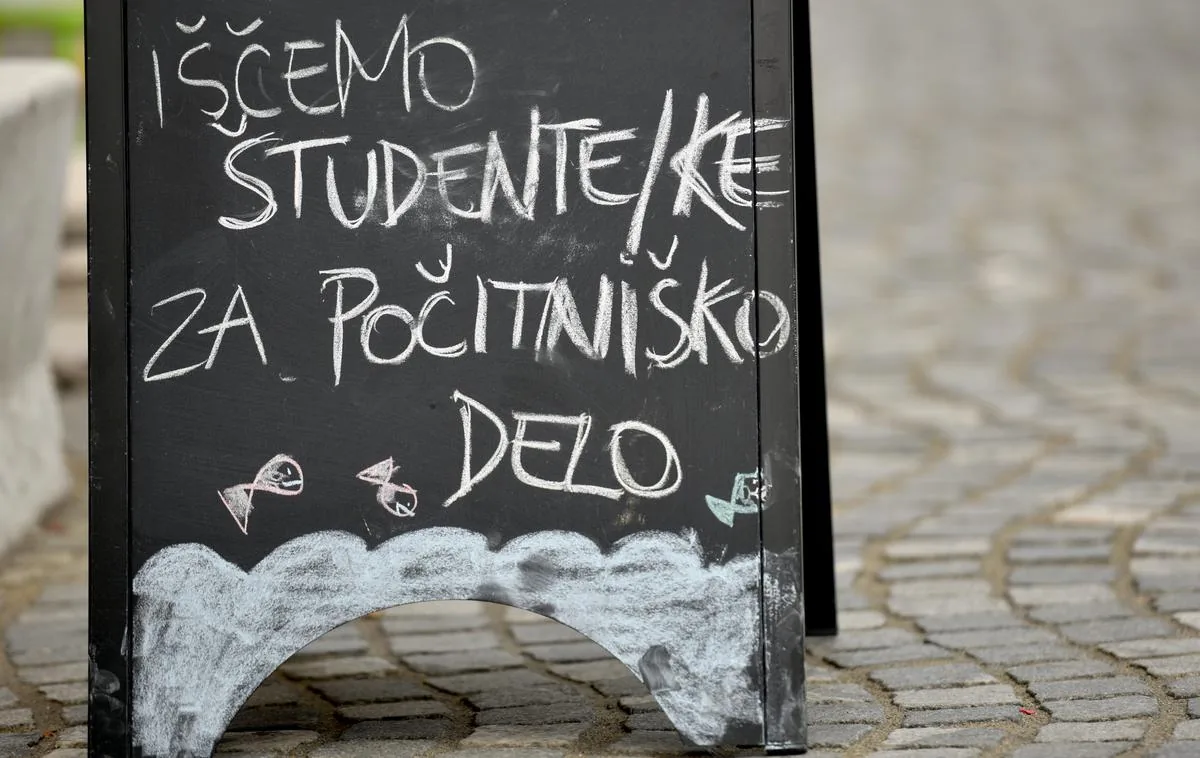 IŠČEMO
ŠTUDENTE/KE
ZA POČITNIŠKO
DELO